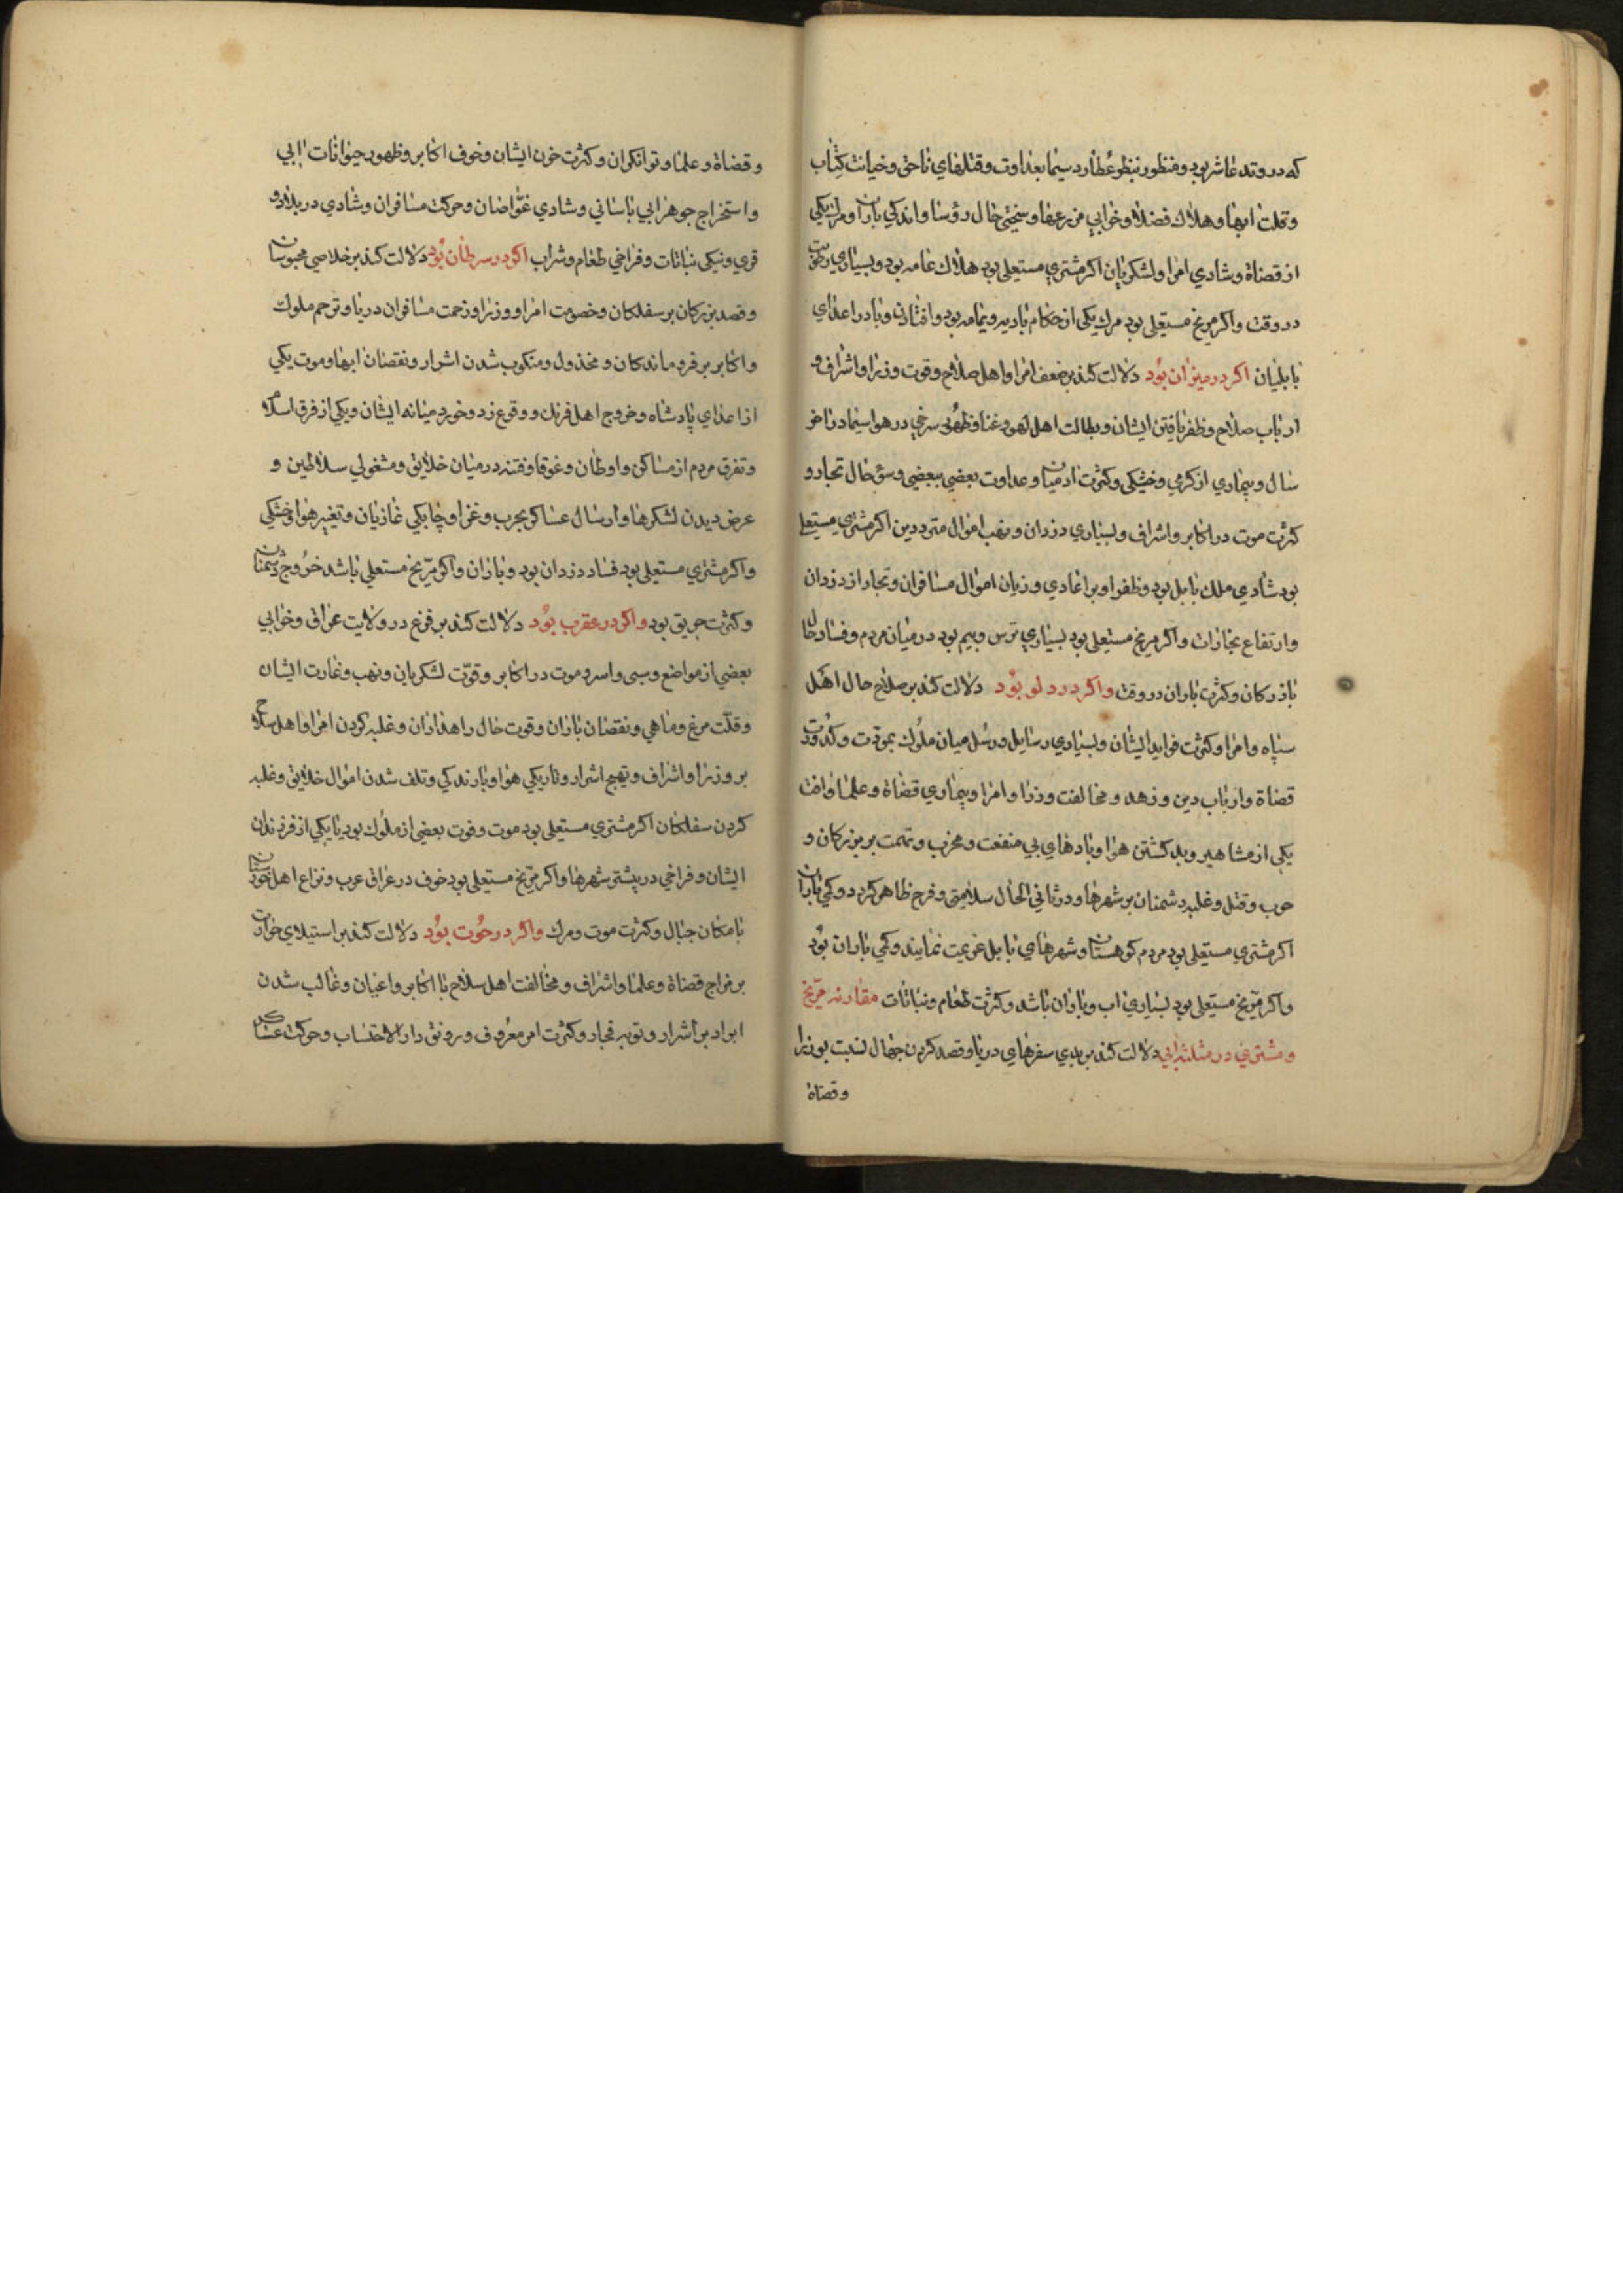 که در وتد عاشر بود و منظور بنظر عطارد سیما بعداوت و قتلهای ناحق و خیانت کتاب
و قلت ابها و هلاك فضلا و خرابی مزرعها و سختی حال رؤسا و اندکی باران و مرك یکی
از قضاة و شادی امرا و لشکریان اکر مشتری مستعلی بود هلاك عامه بود و بسیاری رطوبت
در وقت و اکر مریخ مستعلی بود مرك یکی از حکام بادیه و یمامه بود و افتادن وبا در اعدای
بابلیان اکر در میزان بود دلالت کند بر ضعف امرا و اهل صلاح و قوت وزرا و اشراف و
ارباب صلاح و ظفر یافتن ایشان و بطالت اهل لهو و غنا و ظهور سرخی در هوا سیما در اخر
سال و بیماری از کرمی و خشکی و کثرت ادمیان و عداوت بعضی ببعضی و سؤ حال تجار و
کثرت موت در اکابر و اشراف و بسیاری دزدان و نهب اموال مترددین اکر مشتری مستعلی
بود شادی ملك بابل بود و ظفر او بر اعادی و زیان اموال مسافران و تجار از دزدان
و ارتفاع بخارات و اکر مریخ مستعلی بود بسیاری ترس و بیم بود در میان مردم و فساد حال
بازرکان و کثرت باران در وقت و اکر در دلو بود دلالت کند بر صلاح حال اهل
سپاه و امرا و کثرت فواید ایشان و بسیاری رسایل و رسل میان ملوك بمودت و کدورت
قضاة و ارباب دین و زهد و مخالفت وزرا و امرا و بیماری قضاة و علما و افت
یکی از مشاهیر و بد کشتن هوا و بادهای بی منفعت و مخرب و تهمت بر بزرکان و
حرب و قتل و غلبه دشمنان بر شهرها و در ثانی الحال سلامتی و فرح ظاهر کردد و کمی باران
اکر مشتری مستعلی بود مردم کوهستان و شهرهای بابل عزیمت نمایند و کمی باران بود
و اکر مریخ مستعلی بود بسیاری اب و باران باشد و کثرت طعام و نباتات مقارنه مریخ
و مشتری در مثلثه ابی دلالت کند بر بدی سفرهای دریا و قصد کردن جهال نسبت بوزرا
و قضاة
و قضاة و علما و توانکران و کثرت خون ایشان و خوف اکابر و ظهور حیوانات ابی
و استخراج جوهر ابی باسانی و شادی غواصان و حرکت مسافران و شادی در بلاد و
قری و نیکی نباتات و فراخی طعام و شراب اکر در سرطان بود دلالت کند بر خلاصی محبوسان
و قصد بزرکان بر سفلکان و خصومت امرا و وزرا و زحمت مسافران دریا و ترحم ملوك
و اکابر بر فرو ماندکان و مخذول و منکوب شدن اشرار و نقصان ابها و موت یکی
از اعدای پادشاه و خروج اهل فرنك و وقوع زد و خورد میانه ایشان و یکی از فرق اسلام
و تفرق مردم از مساکن و اوطان و غوقا و فتنه در میان خلایق و مشغولی سلاطین و
عرض دیدن لشکرها و ارسال عساکر بحرب و غزا و چابکی غازیان و تغییر هوا و خشکی
و اکر مشتری مستعلی بود فساد دزدان بود و باران و اکر مریخ مستعلی باشد خروج دشمنان
و کثرت حریق بود و اکر در عقرب بود دلالت کند بر فزع در ولایت عراق و خرابی
بعضی از مواضع و سبی و اسر و موت در اکابر و قوت لشکریان و نهب و غارت ایشان
و قلت مرغ و ماهی و نقصان باران و قوت حال راهداران و غلبه کردن امرا و اهل سلاح
بر وزرا و اشراف و تهیج اشرار و تاریکی هوا و بارندکی و تلف شدن اموال خلایق و غلبه
کردن سفلکان اکر مشتری مستعلی بود موت و فوت بعضی از ملوك بود یا یکی از فرزندان
ایشان و فراخی در بیشتر شهرها و اکر مریخ مستعلی بود خوف در عراق عرب و نزاع اهل خوزستان
با مکان جبال و کثرت موت و مرك و اکر در حوت بود دلالت کند بر استیلای حرارت
بر مزاج قضاة و علما و اشراف و مخالفت اهل سلاح با اکابر و اعیان و غالب شدن
ابرار بر اشرار و توبه فجار و کثرت امر معروف و رونق دار الاحتساب و حرکت عساکر